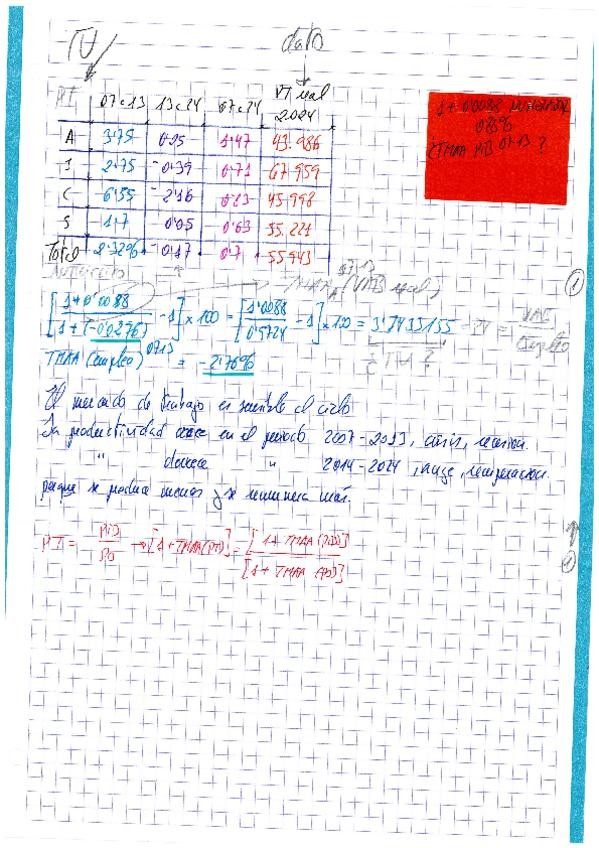 TV dato
PT 07-13 13-24 07-24 PT real 2024
A 3'75 0'25 1'47 43.986
I 2'75 -0'39 0'71 67.959
C 6'55 -2'16 0'13 45.998
S 1'7 0'05 0'63 55.221
Total 2'32% -0'17 0'7 55943
1+0'0088
0'88%
¿TMAA PIB 07-13 ?
TMAA 07-13 (VAB real)
[ 1+0'0088 / 1+(-0'0276) -1] x 100 = [ 1'0088 / 0'9724 -1] x 100 = 3'7435155 = VAB / Empleo
TMAA (empleo) 07-13 = -2'76% ¿TV?
El mercado de trabajo es sensible al ciclo
La productividad crece en el periodo 2007-2013, crisis, recesión.
" decrece " 2014-2024, auge, recuperación.
porque se produce menos y se remunera más.
PT = PIB / PO → [1+TMAA(PT)] = [1+TMAA (PIB)] / [1+TMAA (PO)]
1
1